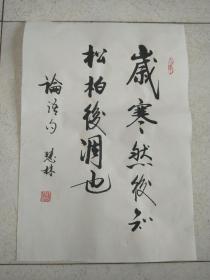 歲寒然後知
松柏後凋也
論語句 慧林